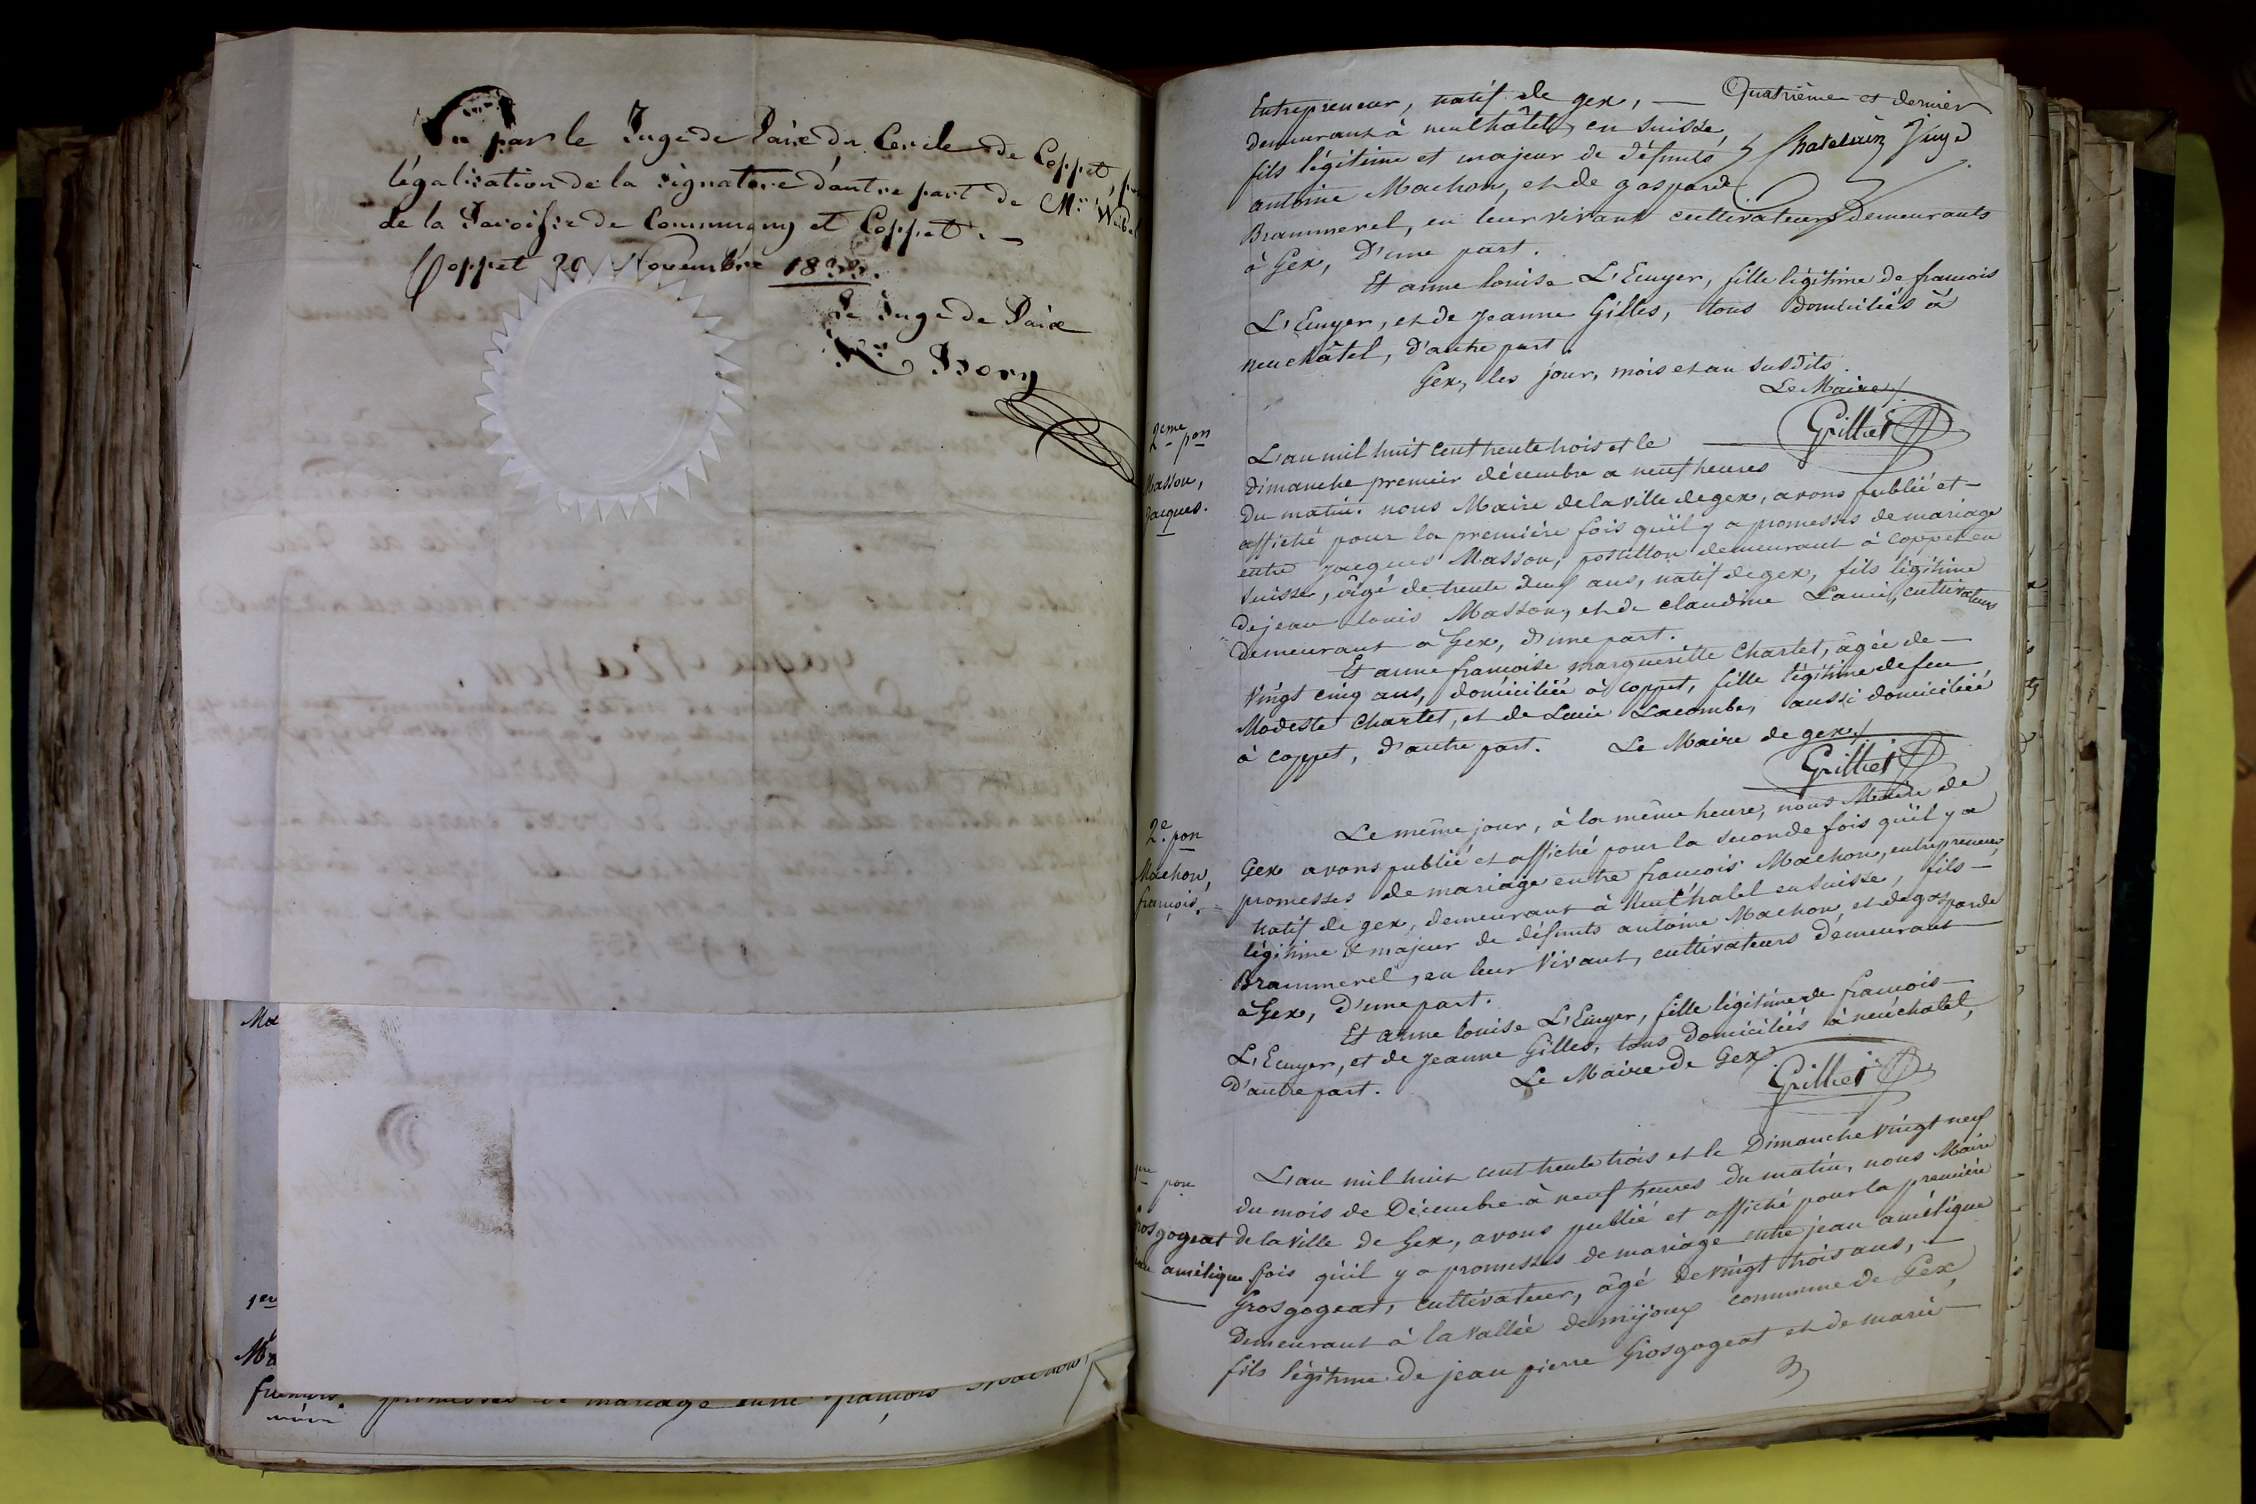 Vu par le Juge de Paix du Cercle de Coppet, pour
légalisation de la signature d'autre part de Mr. Weibel
de la Paroisse de Commugny et Coppet. —
Coppet 20 Novembre 1833.
Le Juge de Paix
Ma
1ere
Ma
françois. promesses de mariage entre françois Machon,
Entrepreneur, natif de gex, — Quatrième et dernier
demeurant à neuchâtel, en suisse, Chatelain Juge
fils légitime et majeur de défunts
antoine Machon, et de gasparde
Brammerel, en leur vivant cultivateurs Demeurants
à Gex, D'une part.
Et anne louise L'Ecuyer, fille légitime de francois
L'Ecuyer, et de Jeanne Gilles, tous domiciliés à
neuchâtel, d'autre part.
Gex, les jour, mois et an susdits.
Le Maire
Grilliet
2eme pon
Masson,
Jacques.
L'an mil huit cent trente trois et le
Dimanche premier décembre a neuf heures
Du matin. nous Maire de la ville de gex, avons publié et —
affiché pour la premiére fois qu'il y a promesses de mariage
entre Jacques Masson, postillon demeurant à coppet en
Suisse, âgé de trente deux ans, natif de gex, fils légitime
de jean louis Masson, et de claudine Lami, cultivateurs
demeurant à Gex, d'une part.
Et anne francoise marguerilte Charlet, âgée de —
Vingt cinq ans, domiciliée à coppet, fille légitime de feu
Modeste Charlet, et de Lucie Lacombe, aussi domiciliée
à coppet, d'autre part. Le Maire de gex,
Grilliet
2e. pon
Machon,
françois.
Le même jour, à la même heure, nous Maire de
Gex avons publié et affiché pour la seconde fois qu'il y a
promesses de mariage entre francois Machon, entrepreneur,
natif de gex, demeurant à Neuchatel en Suisse, fils —
légitime & majeur de défunts antoine Machon, et de gasparde
Brammerel, en leur vivant, cultivateurs demeurant —
à Gex, D'une part.
Et anne louise L'Ecuyer, fille légitime de francois —
L'Ecuyer, et de Jeanne Gilles, tous domiciliés à neuchatel,
D'autre part. Le Maire de Gex
Grilliet
1ere pon
Grosgogeat
Jean amélique
L'an mil huit cent trente trois et le Dimanche vingt neuf
du mois de Décembre à neuf heures du matin, nous Maire
de la ville de Gex, avons publié et affiché pour la première
fois qu'il y a promesses de mariage entre jean amélique
Grosgogeat, cultivateur, âgé de vingt trois ans, —
Demeurant à la vallée de mijoux commune de Gex,
fils légitime de jean pierre Grosgogeat et de marie —